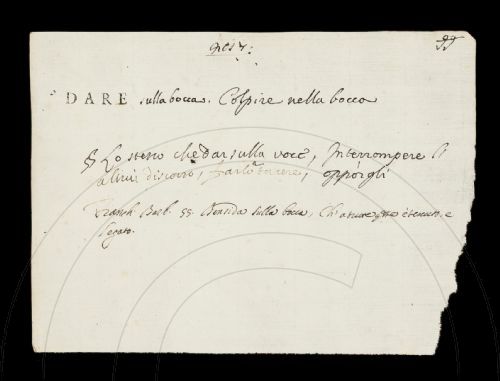 DARE sulla bocca. Colpire nella bocca
§ Lo stesso che dar sulla voce, Interrompere l'
altrui discorso, farlo tacere, opporgli
Franch. Barb. 55. sulla bocca, Ch'a e
legato.